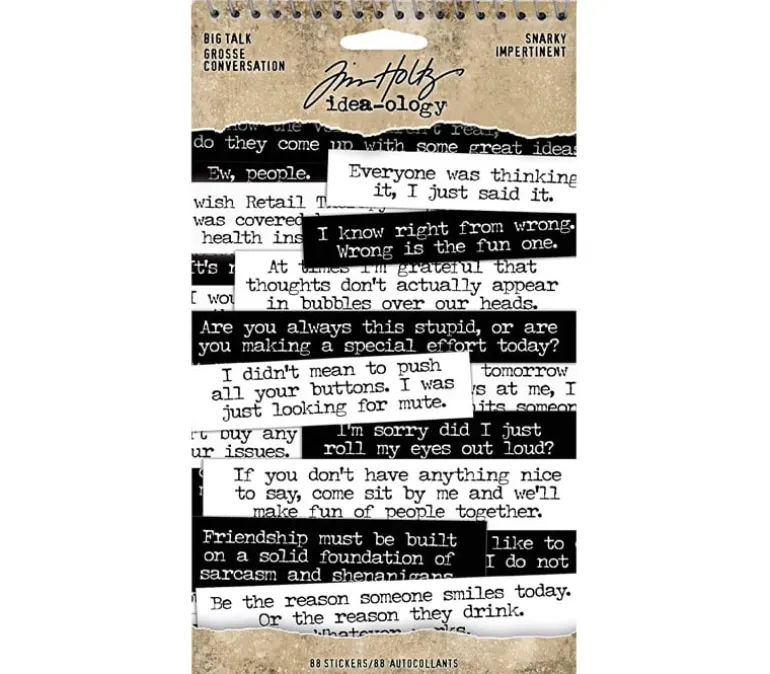 BIG TALK
GROSSE
CONVERSATION
SNARKY
IMPERTINENT
Tim Holtz
idea-ology
do they come up with some great ideas
Ew, people.
Everyone was thinking
it, I just said it.
wish Retail
was covered
health ins
I know right from wrong.
Wrong is the fun one.
It's
At times I'm grateful that
thoughts don't actually appear
in bubbles over our heads.
I wou
Are you always this stupid, or are
you making a special effort today?
I didn't mean to push
all your buttons. I was
just looking for mute.
tomorrow
s at me, I
its someon
t buy any
ur issues.
I'm sorry did I just
roll my eyes out loud?
If you don't have anything nice
to say, come sit by me and we'll
make fun of people together.
Friendship must be built
on a solid foundation of
sarcasm and shenanigans
like to
I do not
Be the reason someone smiles today.
Or the reason they drink.
Whatever works.
88 STICKERS/88 AUTOCOLLANTS